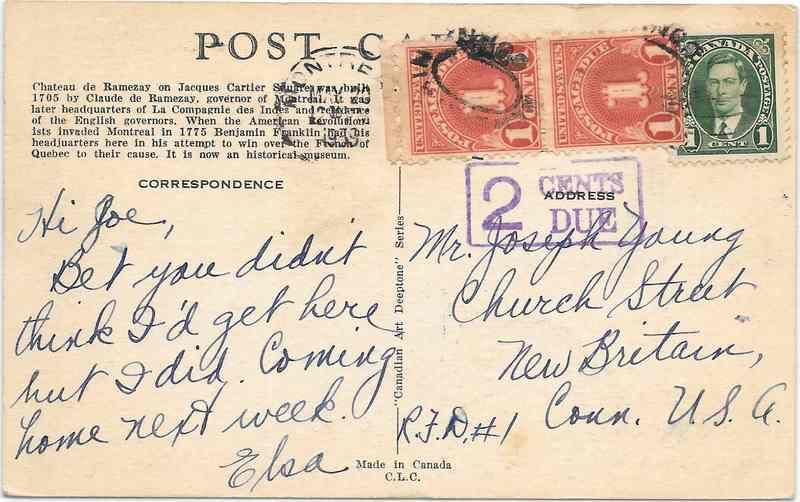 POST CA
Chateau de Ramezay on Jacques Cartier Square was built
1705 by Claude de Ramezay, governor of Montreal. It was
later headquarters of La Compagnie des Indes and residence
of the English governors. When the American Revolution-
ists invaded Montreal in 1775 Benjamin Franklin had his
headjuarters here in his attempt to win over the French of
Quebec to their cause. It is now an historical museum.
CORRESPONDENCE
Hi Joe,
Bet you didn't
think I'd get here
but I did. Coming
home next week.
Elsa
"Canadian Art Deeptone" Series
Made in Canada
C.L.C.
MONTRE
UNITED STATES
POSTAGE DUE
1 1
UNITED STATES
POSTAGE DUE
1 1
CANADA
POSTAGE
1 CENT 1
2 CENTS
DUE
ADDRESS
Mr. Joseph Young
Church Street
New Britain,
R.F.D. #1 Conn. U.S.A.